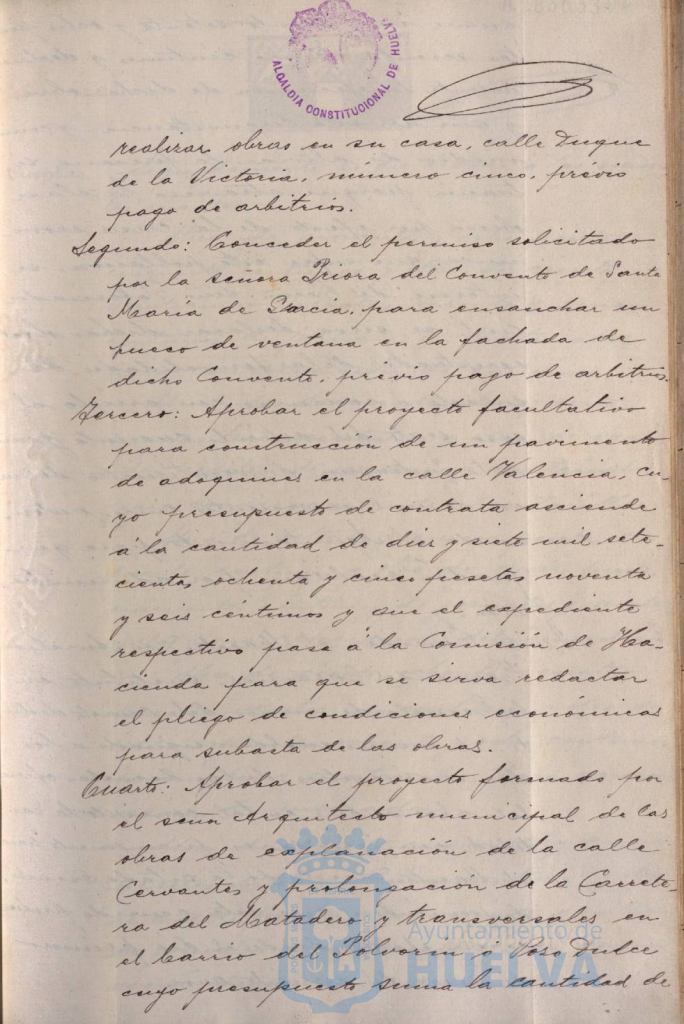 ALCALDIA CONSTITUCIONAL DE HUELV
realizar obras en su casa, calle Duque
de la Victoria, número cinco, prévio
pago de arbitrios.
Segundo: Conceder el permiso solicitado
por la señora Priora del Convento de Santa
María de Gracia, para ensanchar un
hueco de ventana en la fachada de
dicho Convento, prévio pago de arbitrios.
Tercero: Aprobar el proyecto facultativo
para construcción de un pavimento
de adoquines en la calle Valencia, cu-
yo presupuesto de contrata asciende
á la cantidad de diez y siete mil sete-
cientas ochenta y cinco pesetas noventa
y seis céntimos y que el expediente
respectivo pase á la Comisión de Ha-
cienda para que se sirva redactar
el pliego de condiciones económicas
para subasta de las obras.
Cuarto: Aprobar el proyecto formado por
el señor Arquitecto municipal de las
obras de explanación de la calle
Cervantes y prolongación de la Carrete-
ra del Matadero y transversales en
el barrio del Polvorín ó Pozo Dulce
cuyo presupuesto suma la cantidad de
Ayuntamiento de
HUELVA